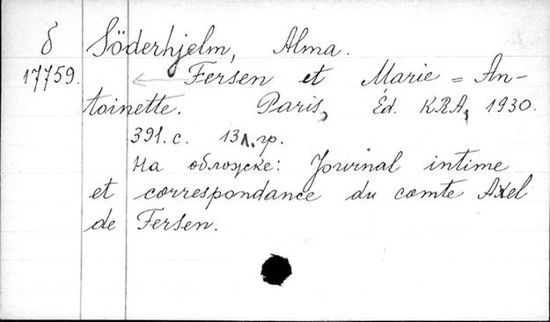 δ Söderhjelm, Alma.
17759. Fersen et Marie=An-
toinette. Paris, Éd. KRA, 1930.
391.с. 13 л. гр.
На обложке: Journal intime
et correspondance du comte Axel
de Fersen.